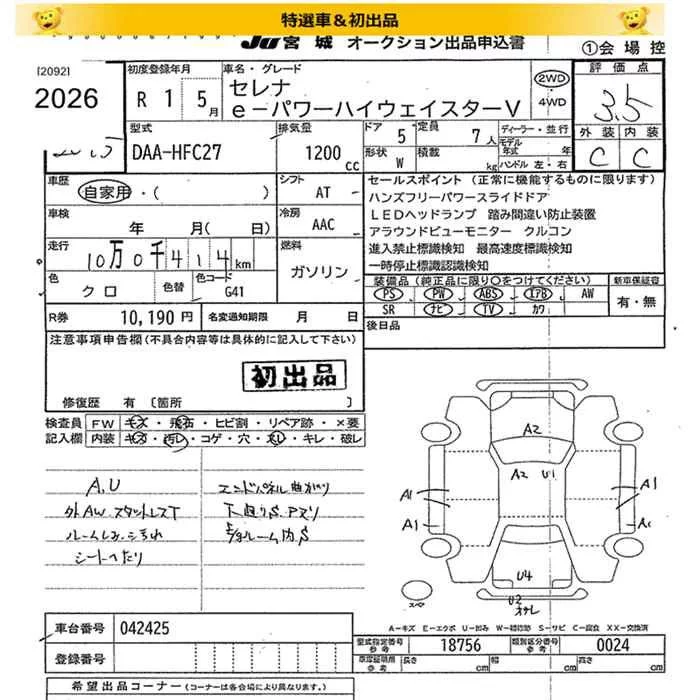 特選車＆初出品
JU宮城 オークション出品申込書
①会場控
[2092]
2026
初度登録年月
R 1 5月
車名・グレード
セレナ
e-パワーハイウェイスターV
2WD
4WD
評価点
3.5
外装 内装
C C
型式
DAA-HFC27
排気量
1200cc
ドア 5
定員 7人
形状 W
積載 kg
ディーラー・並行
モデル年式 年
ハンドル 左・右
車歴
自家用・( )
シフト
AT
車検
年 月( 日)
冷房
AAC
走行
10万0千414km
燃料
ガソリン
色
クロ
色替
色コード
G41
R券 10,190円
名変通知期限 月 日
セールスポイント (正常に機能するものに限ります)
ハンズフリーパワースライドドア
LEDヘッドランプ 踏み間違い防止装置
アラウンドビューモニター クルコン
進入禁止標識検知 最高速度標識検知
一時停止標識認識検知
装備品(純正品に限り○をつけてください)
新車保証書
PS PW ABS エアB AW
SR ナビ TV カワ
有・無
後日品
注意事項申告欄(不具合内容等は具体的に記入して下さい)
初出品
修復歴 有 〔箇所 〕
検査員記入欄
FW キズ・飛石・ヒビ割・リペア跡・×要
内装 キズ・汚レ・コゲ・穴・スレ・キレ・破レ
A,U
外AW スタットレスT
ルームしみ、よごれ
シートへたり
エンドパネル曲がり
下廻りS.アズリ
E/gルーム内S
A2
A2 U1
A1 A1
A1
U4
U2
スペア
A-キズ E-エクボ U-凹み W-補修跡 S-サビ C-腐食 XX-交換済
車台番号 042425
登録番号
型式指定番号 参考 18756
類別区分番号 参考 0024
長さ cm 幅 cm 高さ cm
希望出品コーナー(コーナーは各会場により異なります。)